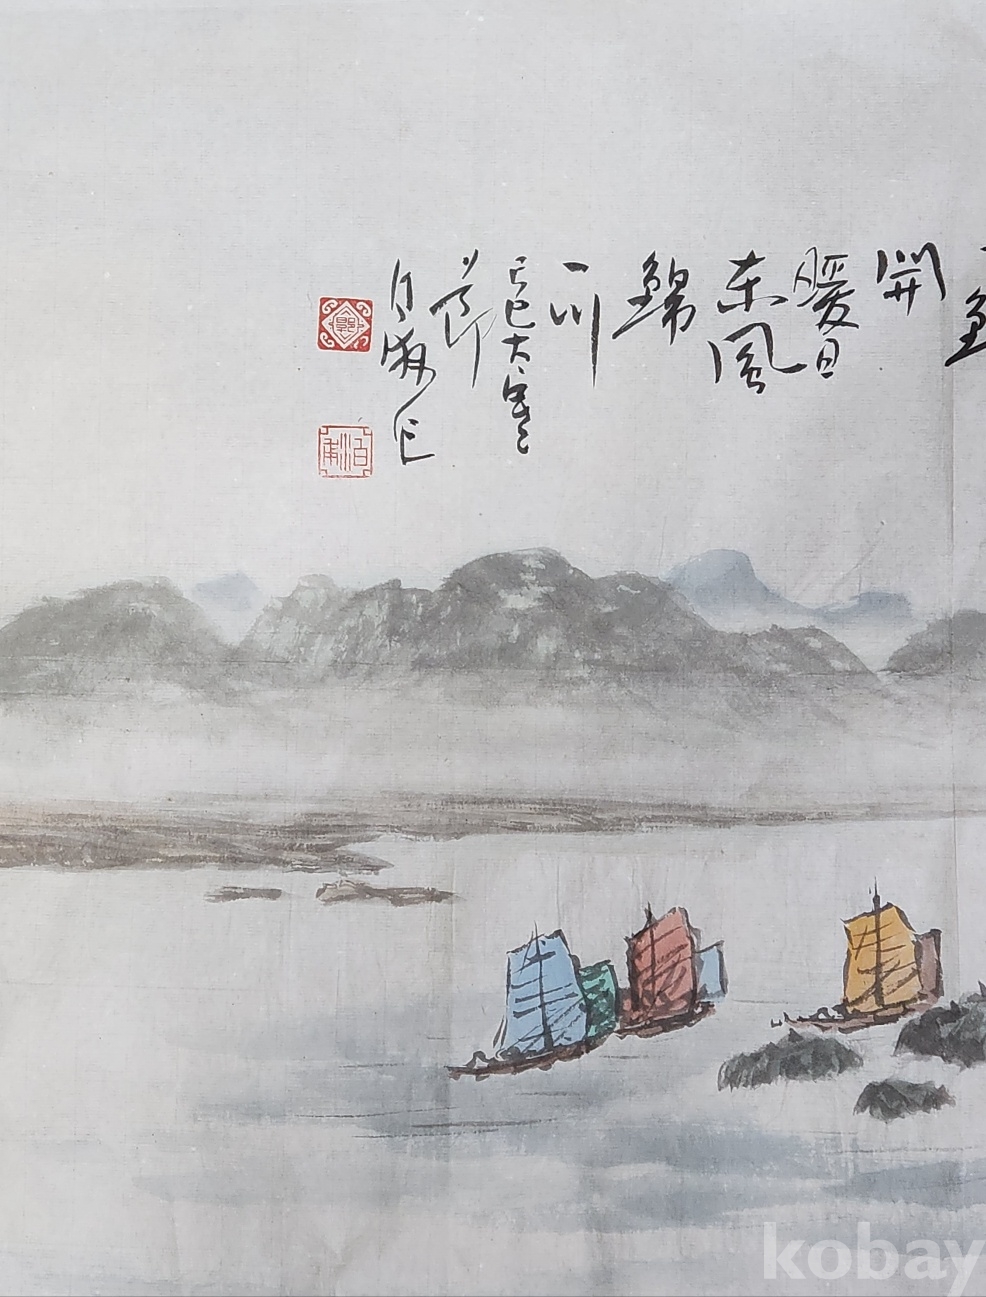 開
暖日
東風
錦
一川
己巳大寒
節
kobay